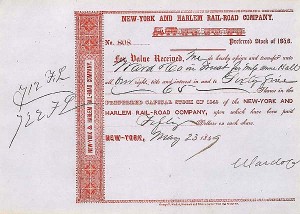 NEW-YORK AND HARLEM RAIL-ROAD COMPANY.
No. 808. Preferred Stock of 1848.
For Value Received, We do hereby assign and transfer unto
Ward & Co in trust for Mrs Anne Hall
all Our right, title and interest in and to Sixty Five
65 Shares in the
PREFERRED CAPITAL STOCK OF 1848 of the NEW-YORK AND
HARLEM RAIL-ROAD COMPANY, upon which have been paid
Fifty Dollars on each share.
NEW-YORK, May 23 1849
Ward & Co
NEW-YORK & HARLEM RAIL-ROAD COMPANY.